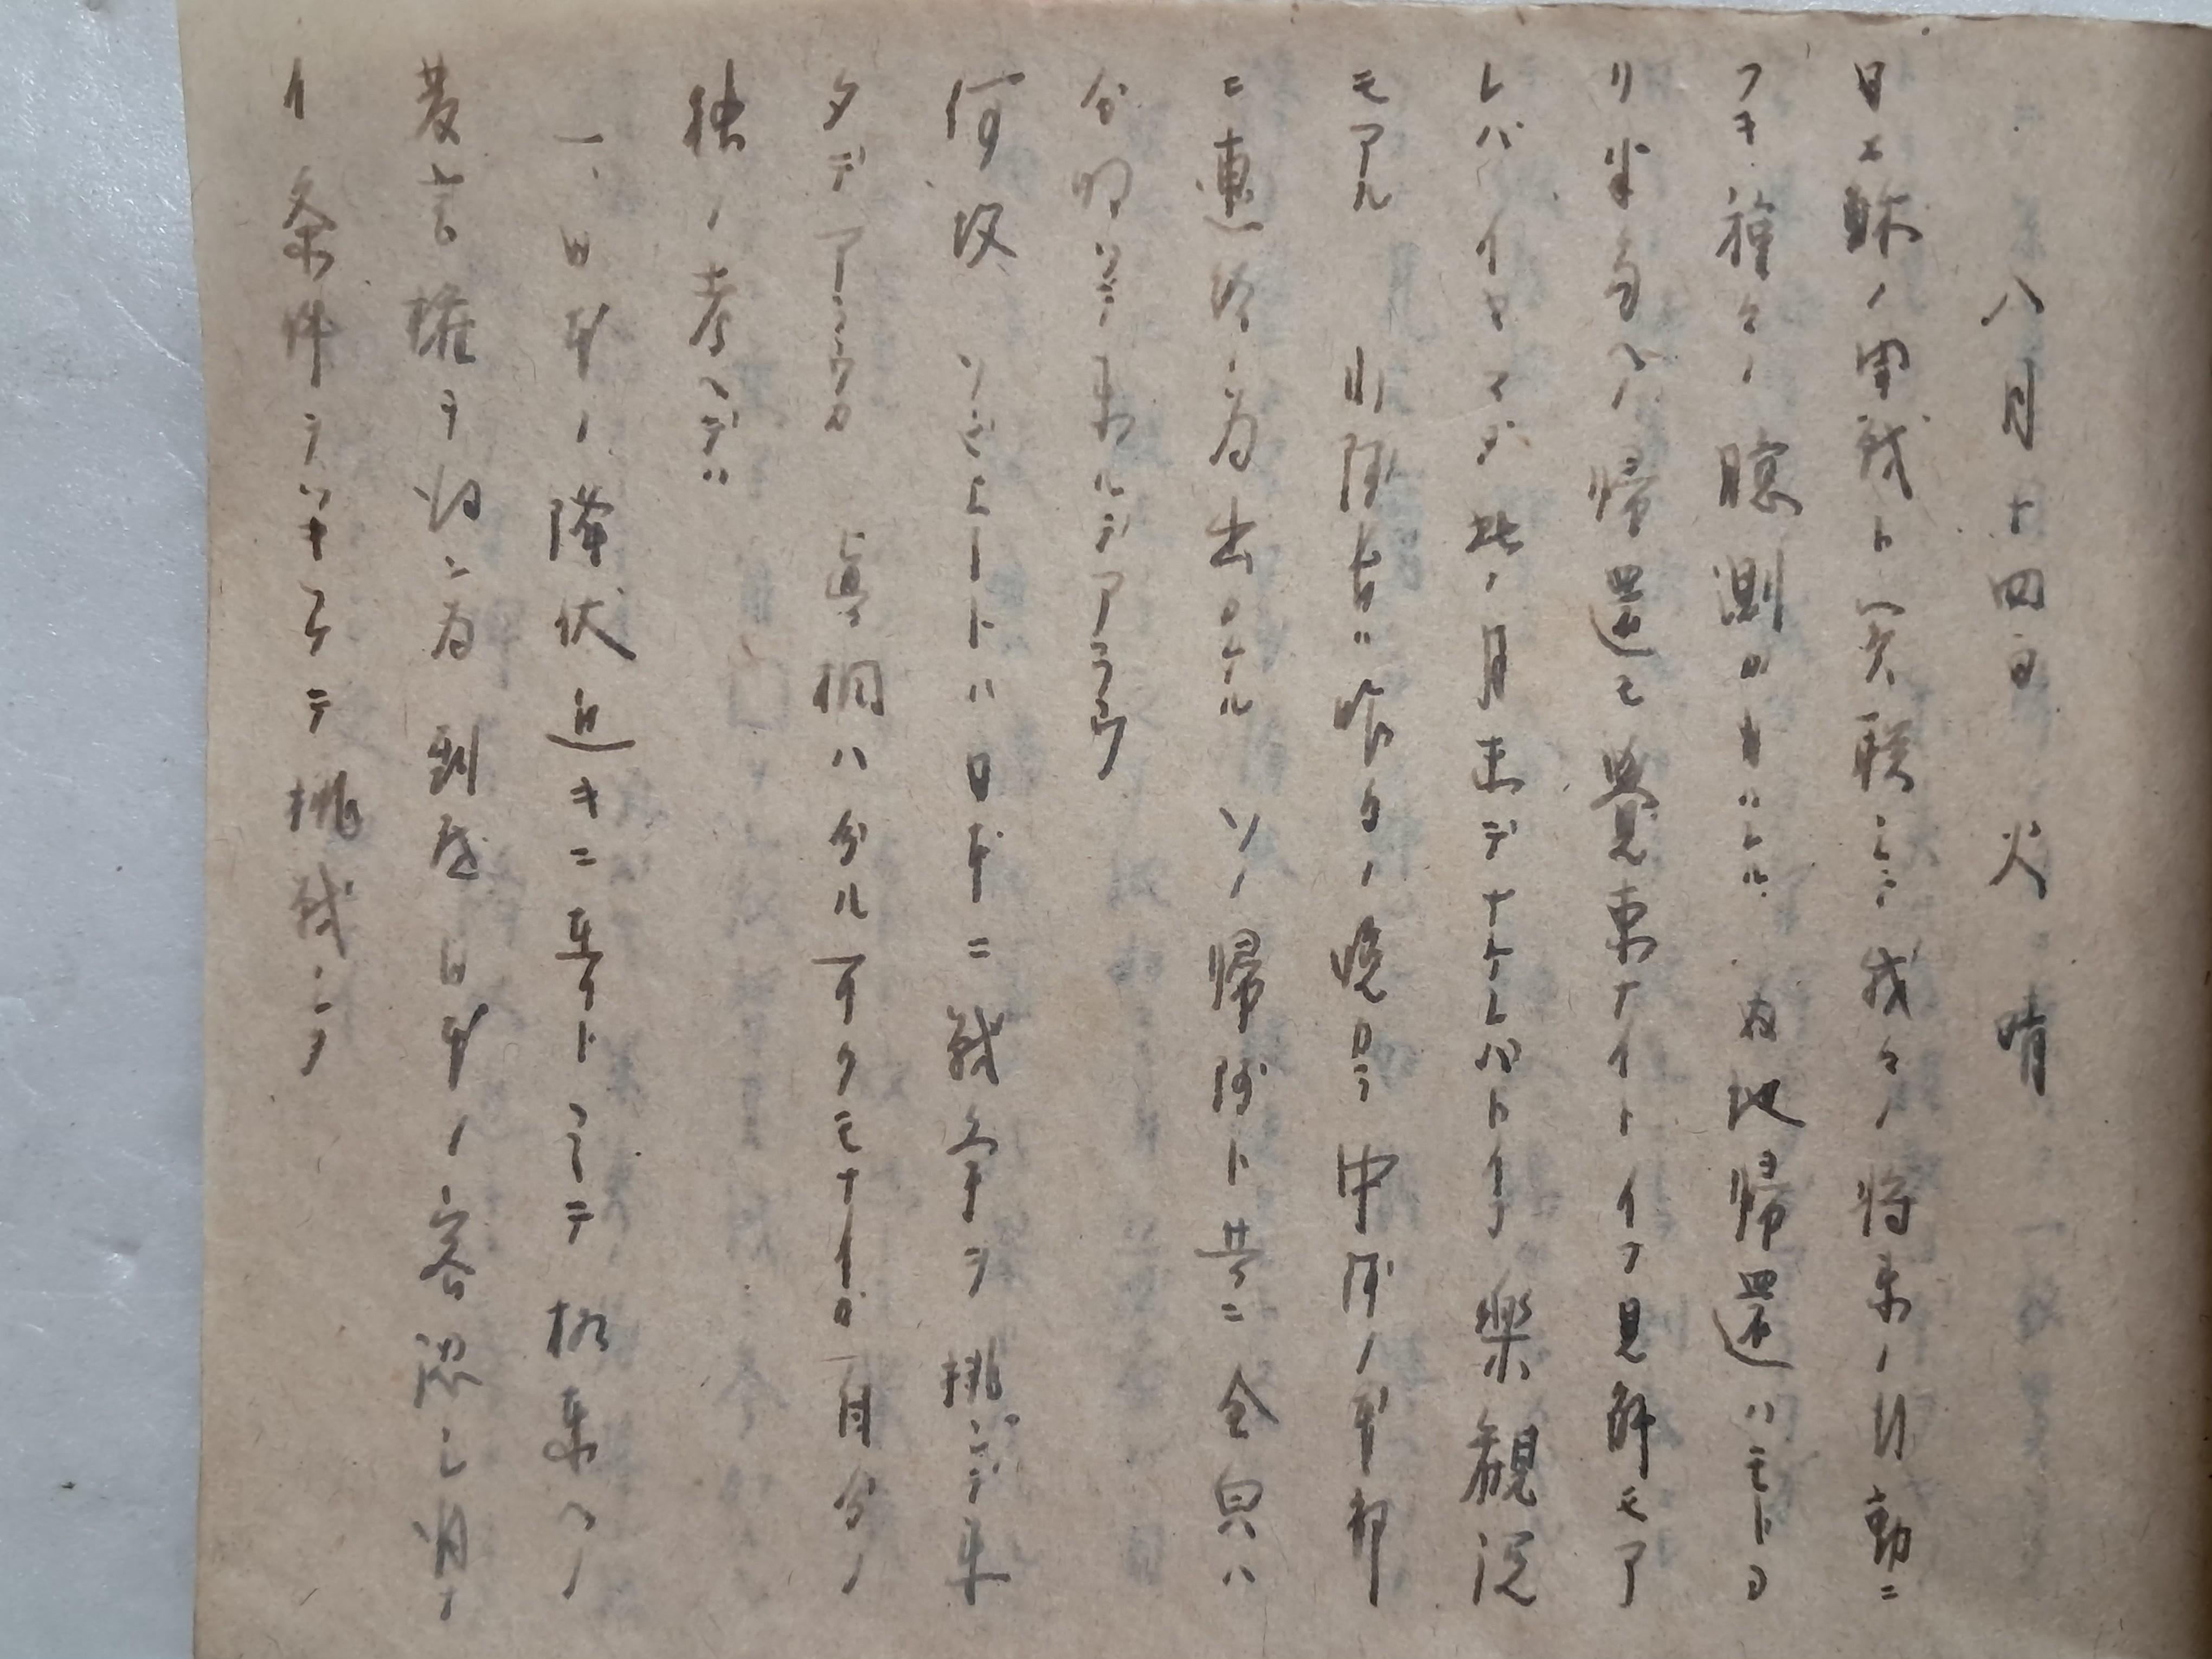 八月十四日 火 晴
日ニ蘇ノ開戦ト関聯シテ我々ノ将来ノ行動ニ
ツキ種々ノ臆測ガナサレル 内地帰還ハモトヨ
リ半島ヘノ帰還モ覺束ナイトイフ見解モア
レバイヤマダ此ノ月末デナケレバトイフ樂観説
モアル 小隊長ガ昨夕ノ晩カラ中隊ノ本部
ニ連絡ノ為出カケル ソノ帰隊ト共ニ全貌ハ
分明シテ来ルデアラウ
何故 ソビエートハ日本ニ戦争ヲ挑ンデ来
タデアラウカ 真相ハ分ル可クモナイガ自分ノ
独ノ考ヘデハ
一、日本ノ降伏近キニ在リトミテ極東ヘノ
発言権ヲ得ン為 到底日本ノ容認シ得ナ
イ条件ヲツキツケテ挑戦シタ